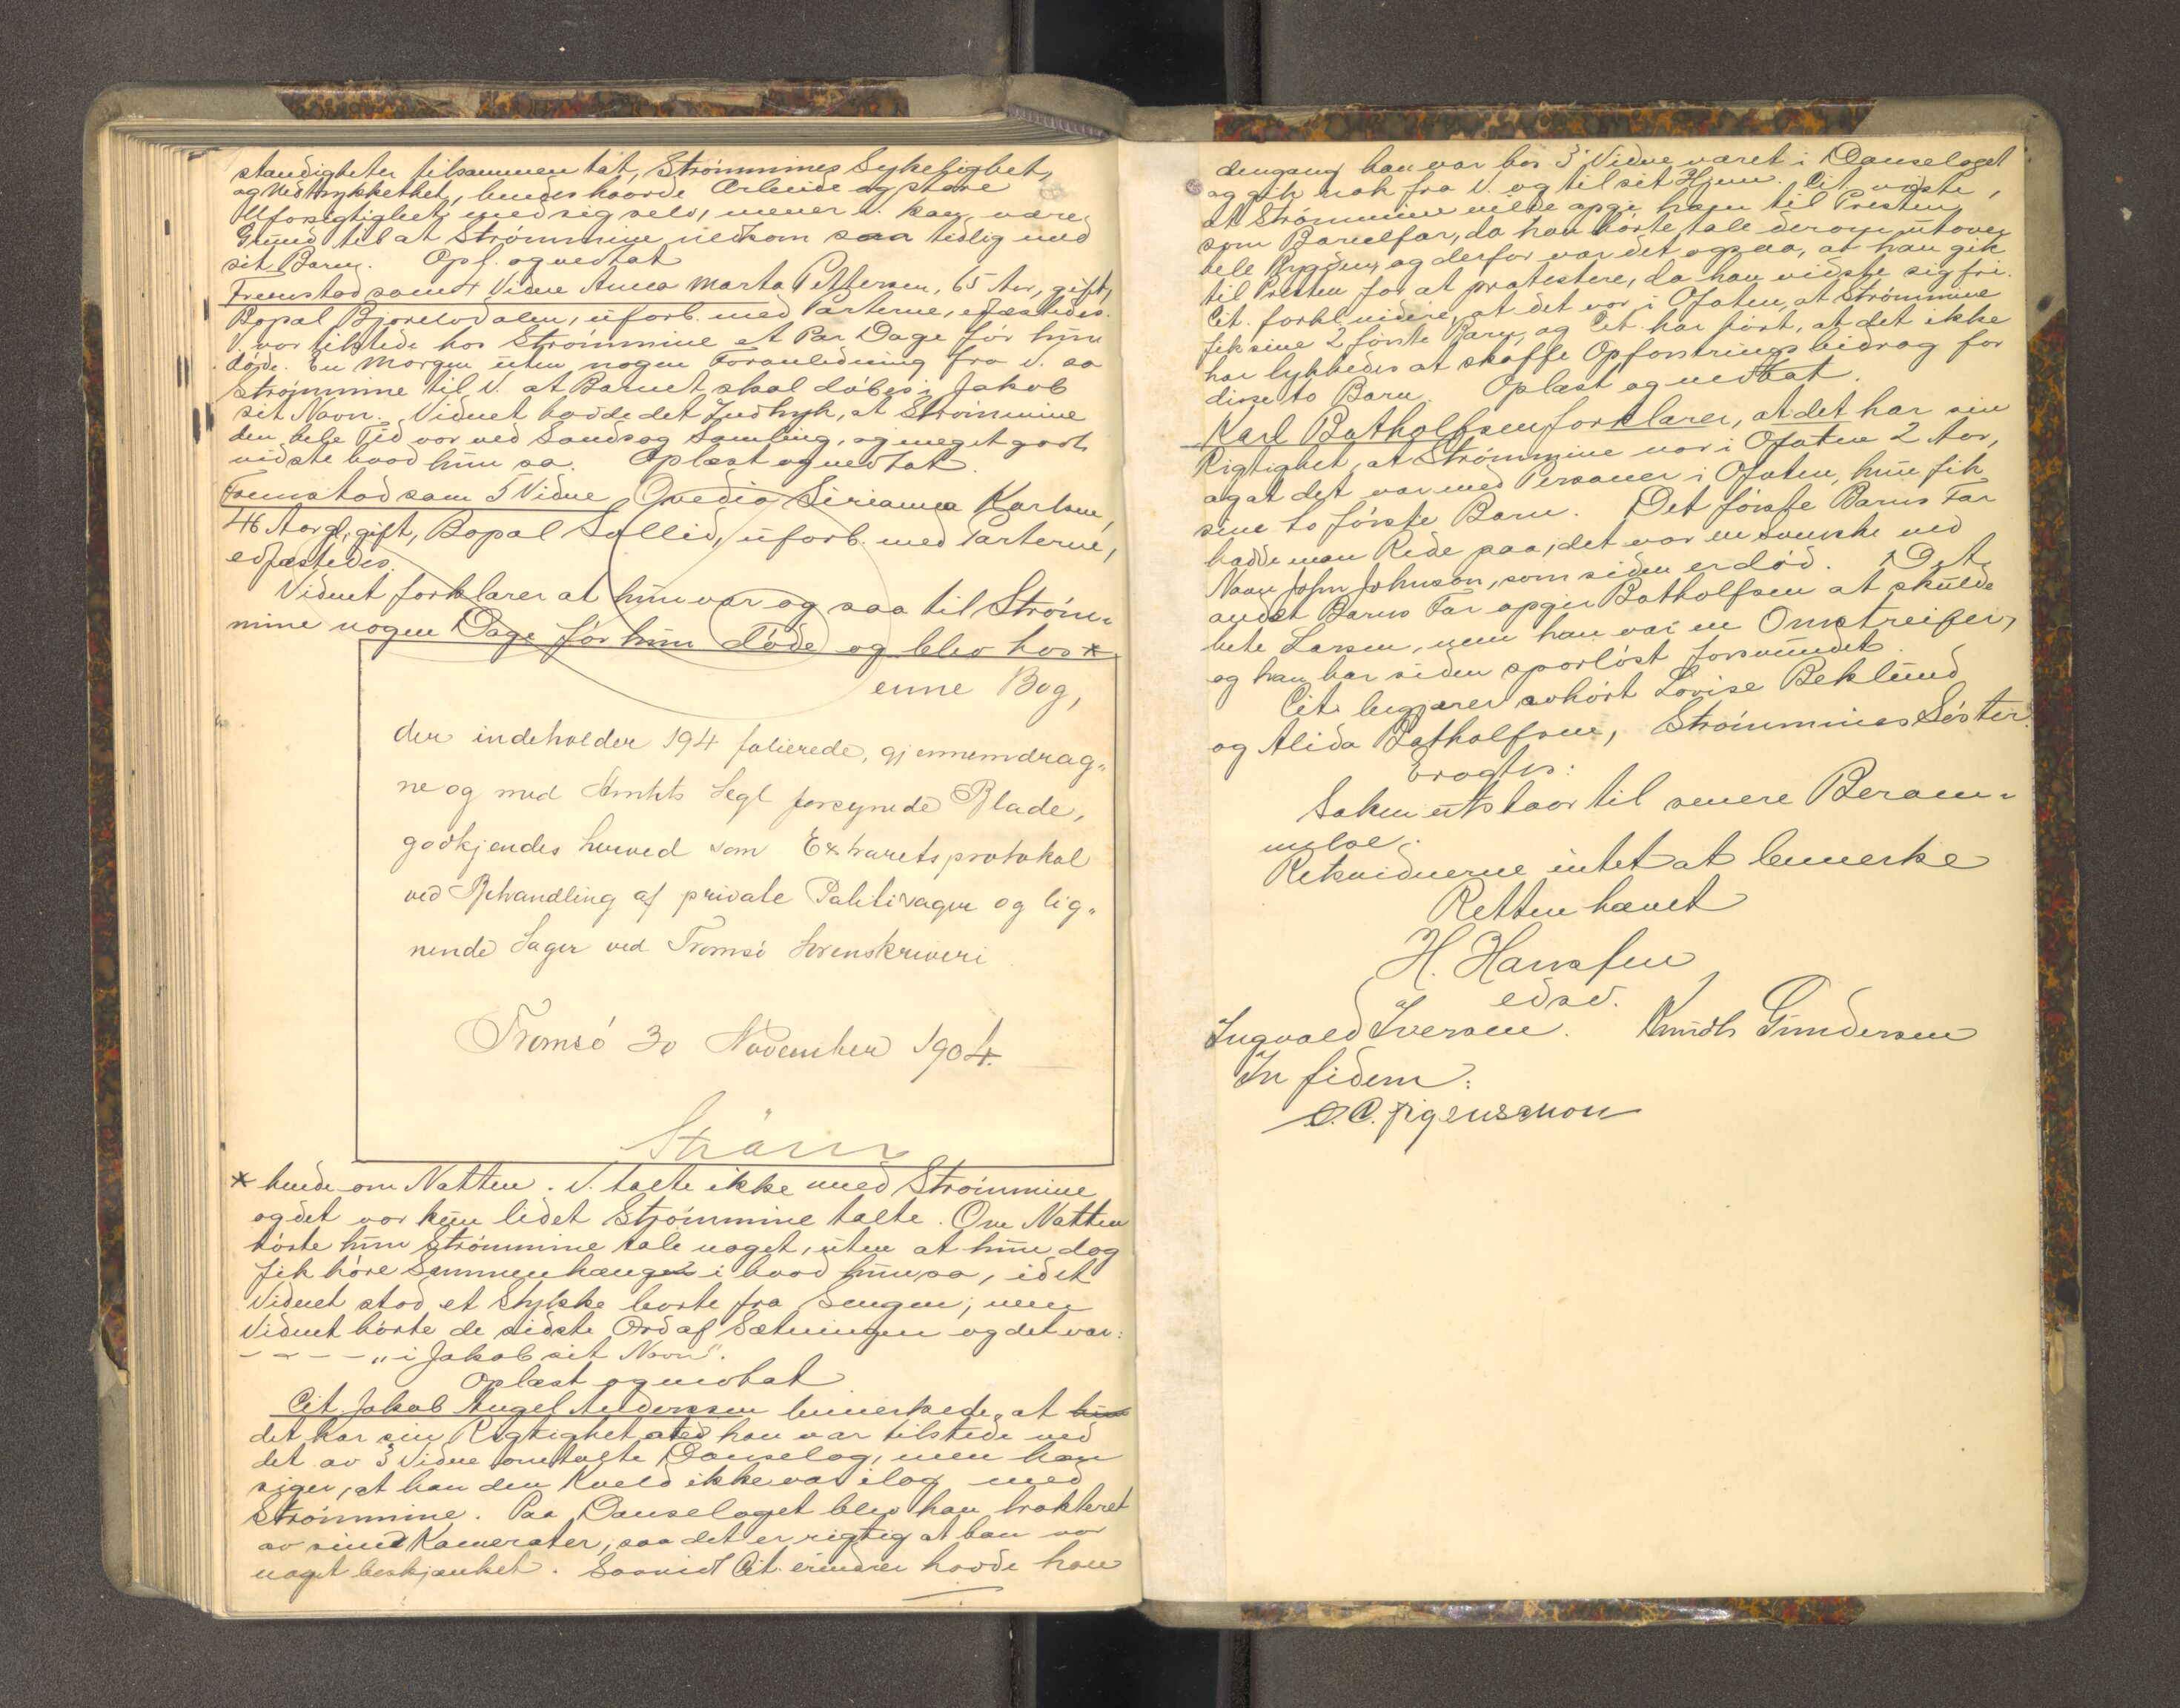 standigheter tilsammen tat, Strømmines Sykelighet,
og Nedtrykkethet, hendes haarde Arbeide og store
Uforsigtighet med sig selv, mener V. kan være
Grund til at Strømmine nedkom saa tidlig med
sit Barn. Opl. og vedtat
Fremstod som 4 Vidne Anna Marta Pettersen, 65 Aar, gift,
Bopal Bjorelvdalen, uforb. med Parterne, edfæstedes.
V. var tilstede hos Strømmine et Par Dage før hun
døde. En Morgen uten nogen Foranledning fra V. sa
Strømmine til V. at Barnet skal døbes i Jakob
sit Navn. Vidnet havde det Indtryk, at Strømmine
den hele Tid var ved Sands og Samling, og meget godt
vidste hvad hun sa. Oplæst og vedtat.
Fremstod som 5 Vidne Ovedia Sirianna Karlsen,
46 Aar gl, gift, Bopal Sollid, uforb. med Parterne,
edfæstedes.
Vidnet forklarer at hun var og saa til Strøm-
mine nogen Dage før hun døde og blev hos *
enne Bog,
der indeholder 194 folierede, gjennemdrag-
ne og med Amtets Segl forsynede Blade,
godkjendes herved som Extraretsprotokol
ved Behandling af private Politisager og lig-
nende Sager ved Tromsø Sorenskriveri
Tromsø 30 November 1904.
Strøm
* hende om Natten. V. talte ikke med Strømmine
og det var kun lidet Strømmine talte. Om Natten
hørte hun Strømmine tale noget, uten at hun dog
fik høre Sammenhængen i hvad hun sa, idet
Vidnet stod et Stykke borte fra Sengen; men
Vidnet hørte de sidste Ord af Sætningen og det var:
- - - - "i Jakob sit Navn".
Oplæst og vedtat
Cit. Jakob Angel Anderssen bemerkede, at hun
det har sin Rigtighet at han var tilstede ved
det av 3 Vidne omtalte Danselag, men han
siger, at han den Kveld ikke var ilag med
Strømmine. Paa Danselaget blev han trakteret
av sine Kamerater, saa det er rigtig at han var
noget beskjænket. Saavidt Cit. erindrer havde han
dengang han var hos 3 Vidne været i Danselaget
og gik nok fra V. og til sit Hjem. Cit. vidste,
at Strømmine vilde opgi ham til Presten
som Barnefar, da han hørte tale derom utover
hele Bygden, og derfor var det ogsaa, at han gik
til Presten for at protestere, da han vidste sig fri.
Cit. forkl. videre, at det var i Ofoten, at Strømmine
fik sine 2 første Barn, og Cit. har hørt, at det ikke
har lykkedes at skaffe Opfostringsbidrag for
disse to Barn. Oplæst og vedtat.
Karl Batholfsen forklarer, at det har sin
Rigtighet, at Strømmine var i Ofoten 2 Aar,
og at det var med Personer i Ofoten, hun fik
sine to første Barn. Det første Barns Far
hadde man Rede paa, det var en Svenske ved
Navn John Johnson, som siden er død. Det
andet Barns Far opgir Batholfsen at skulde
hete Larsen, men han var en Omstreifer,
og han har siden sporløst forsvundet.
Cit. begjærer avhørt Lovise Beklund
og Alida Batholfsen, Strømmines Søster.
Eragtes:
Saken utstaar til senere Beram-
melse.
Retsvidnerne intet at bemerke
Retten hævet
H. Hansen
edsv.
Ingvald Iversen. Knudt Gundersen
In fidem: